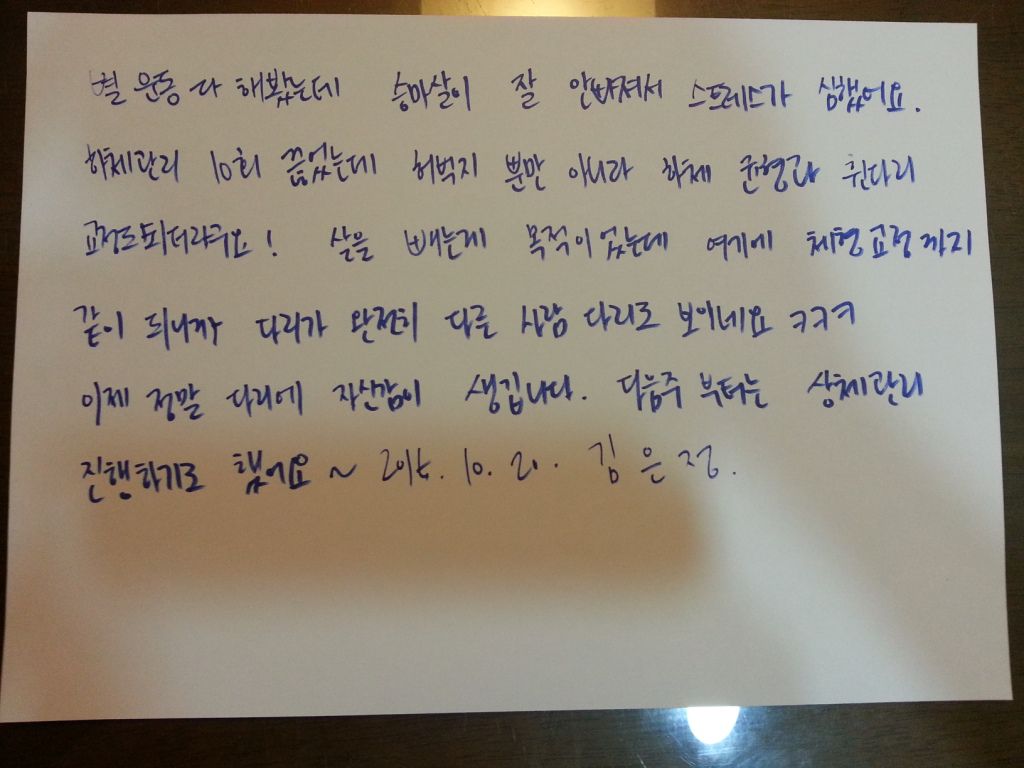 별 운동 다 해봤는데 승마살이 잘 안빠져서 스트레스가 심했어요.
하체관리 10회 끊었는데 허벅지 뿐만 아니라 하체 균형과 휜다리
교정도 되더라구요! 살을 빼는게 목적이었는데 여기에 체형교정까지
같이 되니까 다리가 완전히 다른 사람 다리로 보이네요 ㅋㅋㅋ
이제 정말 다리에 자신감이 생깁니다. 다음주 부터는 상체관리
진행하기로 했어요 ~ 10. 20. 김은정.